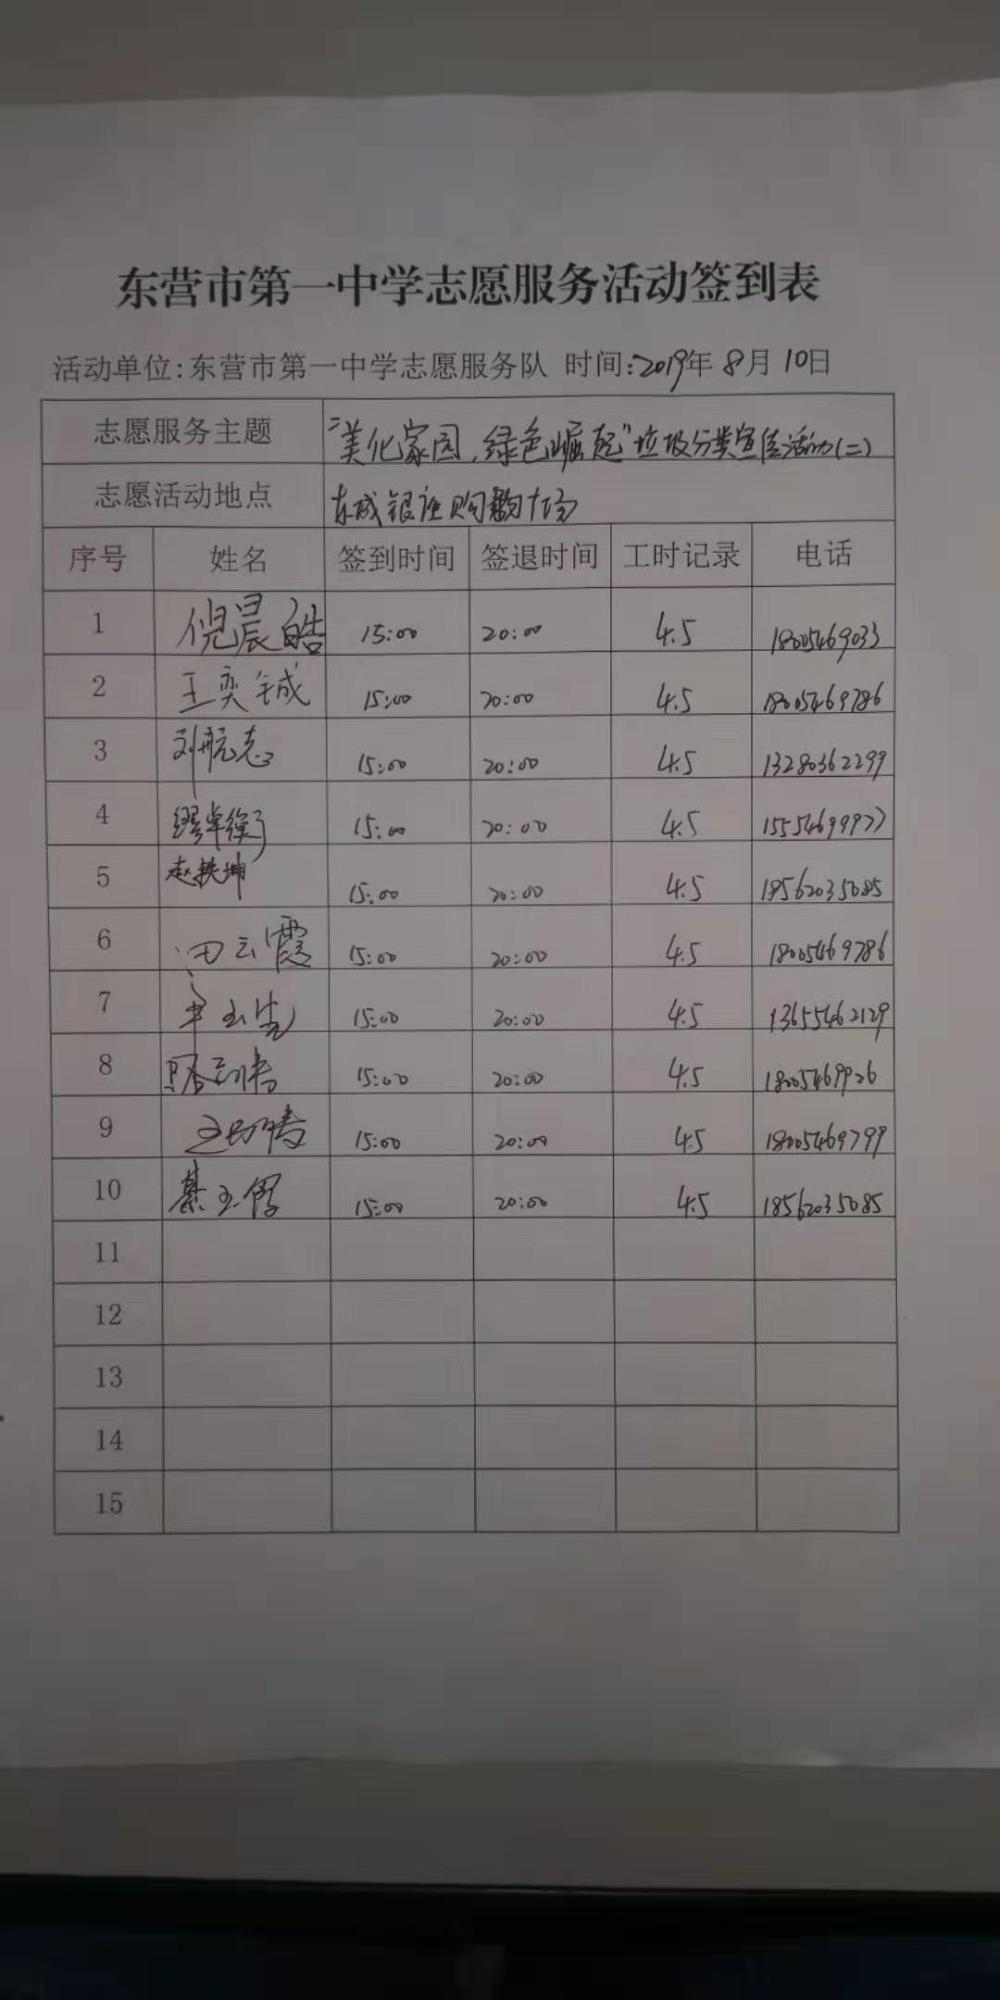 东营市第一中学志愿服务活动签到表
活动单位:东营市第一中学志愿服务队 时间:2019年8月10日
志愿服务主题 "美化家园,绿色崛起"垃圾分类宣传活动(二)
志愿活动地点 东城银座购物广场
序号 姓名 签到时间 签退时间 工时记录 电话
1 倪晨皓 15:00 20:00 4.5 18005469033
2 王奕铖 15:00 20:00 4.5 18005469786
3 刘航志 15:00 20:00 4.5 13280362299
4 缪卓衡 15:00 20:00 4.5 15554699977
5 赵轶坤 15:00 20:00 4.5 18562035085
6 田云霞 15:00 20:00 4.5 18005469786
7 15:00 20:00 4.5 13655462129
8 15:00 20:00 4.5 18005469926
9 15:00 20:00 4.5 18005469799
10 綦玉 15:00 20:00 4.5 18562035085
11
12
13
14
15